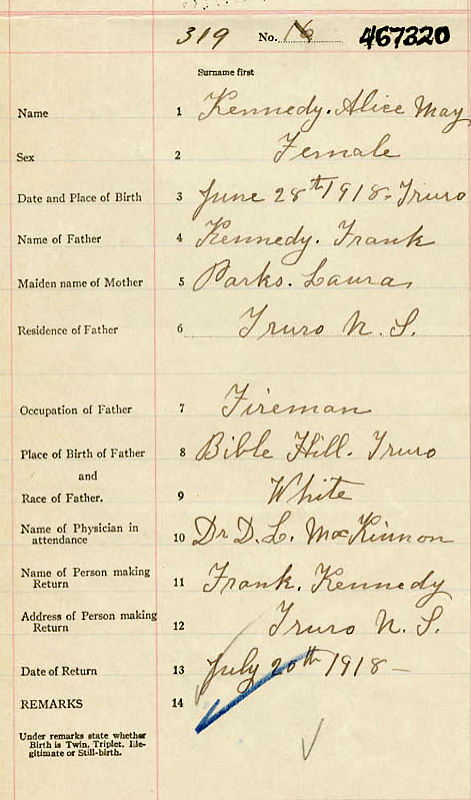 319 No. 16 467320
Surname first
Name 1 Kennedy. Alice May
Sex 2 Female
Date and Place of Birth 3 June 28th 1918. Truro
Name of Father 4 Kennedy. Frank
Maiden name of Mother 5 Parks. Laura
Residence of Father 6 Truro N. S.
Occupation of Father 7 Fireman
Place of Birth of Father 8 Bible Hill. Truro
and
Race of Father. 9 White
Name of Physician in
attendance 10 Dr D. L. MacKinnon
Name of Person making
Return 11 Frank. Kennedy
Address of Person making
Return 12 Truro N. S.
Date of Return 13 July 20th 1918 —
REMARKS 14
Under remarks state whether
Birth is Twin, Triplet, Ille-
gitimate or Still-birth.